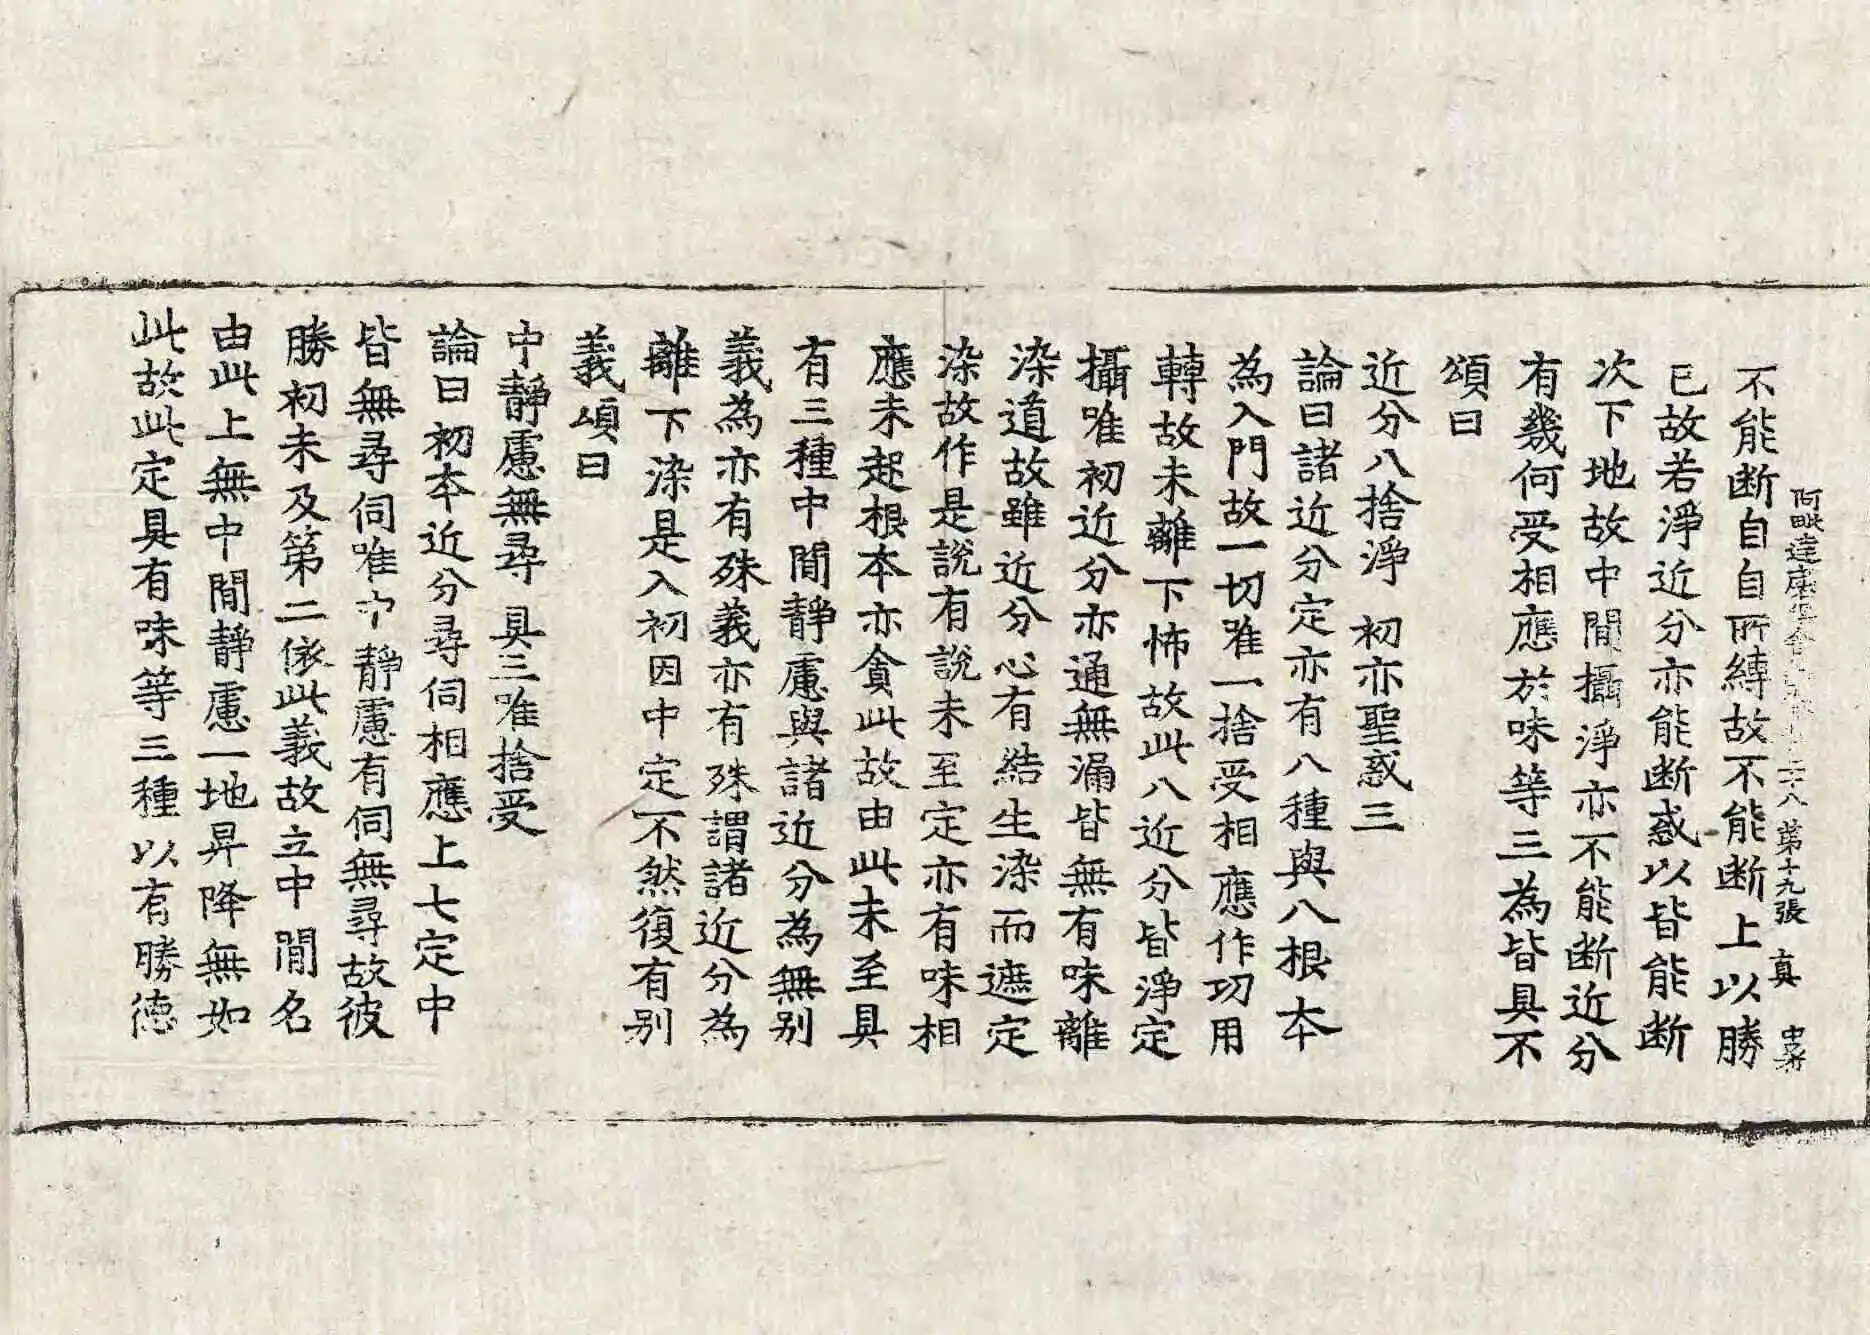 阿毗達磨俱舍 二十八 第十九張 真
不能断自自所縛故不能断上以勝
已故若淨近分亦能断惑以皆能断
次下地故中間攝淨亦不能断近分
有幾何受相應於味等三為皆具不
頌曰
近分八捨淨 初亦聖惑三
論曰諸近分定亦有八種與八根本
為入門故一切唯一捨受相應作功用
轉故未離下怖故此八近分皆淨定
攝唯初近分亦通無漏皆無有味離
染道故雖近分心有結生染而遮定
染故作是說有說未至定亦有味相
應未起根本亦貪此故由此未至具
有三種中間靜慮與諸近分為無别
義為亦有殊義亦有殊謂諸近分為
離下染是入初因中定不然復有别
義頌曰
中靜慮無尋 具三唯捨受
論曰初本近分尋伺相應上七定中
皆無尋伺唯中靜慮有伺無尋故彼
勝初未及第二依此義故立中間名
由此上無中間靜慮一地昇降無如
此故此定具有味等三種以有勝德